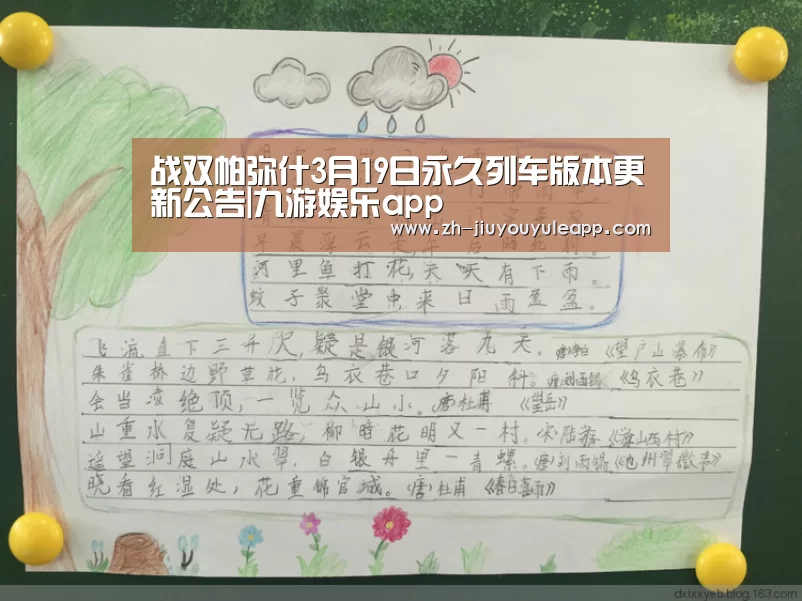 战双帕弥什3月19日永久列车版本更
新公告|九游娱乐app
www.zh-jiuyouyuleapp.com
河里鱼打花,天天有下雨。
蚊子聚堂中,来日雨盈盆。
飞流直下三千尺,疑是银河落九天。唐李白《望庐山瀑布》
朱雀桥边野草花,乌衣巷口夕阳斜。唐刘禹锡《乌衣巷》
会当凌绝顶,一览众山小。(唐)杜甫 《望岳》
山重水复疑无路,柳暗花明又一村。(宋)陆游《游山西村》
遥望洞庭山水翠,白银舟里一青螺。(唐)刘雨锡
晓看红湿处,花重锦官城。(唐)杜甫 《春日喜雨》
dxlxxyeb.blog.163.com